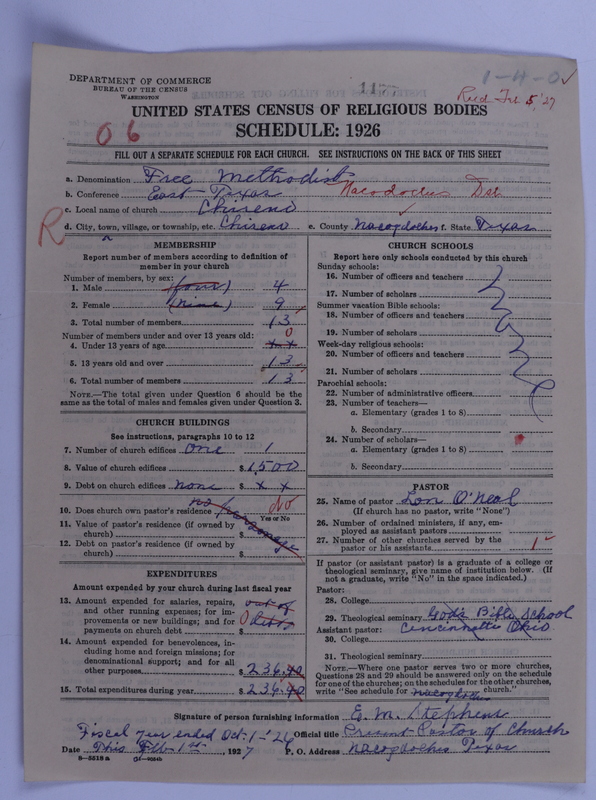 DEPARTMENT OF COMMERCE
BUREAU OF THE CENSUS
WASHINGTON
1-4-0
Recd Feb 5, '27
UNITED STATES CENSUS OF RELIGIOUS BODIES
SCHEDULE: 1926
06
FILL OUT A SEPARATE SCHEDULE FOR EACH CHURCH. SEE INSTRUCTIONS ON THE BACK OF THIS SHEET
a. Denomination Free Methodist
b. Conference East Texas
c. Local name of church Chireno
R
d. City, town, village, or township, etc. Chireno e. County Nacogdoches f. State Texas
MEMBERSHIP
Report number of members according to definition of member in your church
Number of members, by sex:
1. Male (four) 4
2. Female (nine) 9
3. Total number of members 13
Number of members under and over 13 years old:
4. Under 13 years of age x x 0
5. 13 years old and over 13
6. Total number of members 13
NOTE.—The total given under Question 6 should be the same as the total of males and females given under Question 3.
CHURCH BUILDINGS
See instructions, paragraphs 10 to 12
7. Number of church edifices one 1
8. Value of church edifices $1,500
9. Debt on church edifices none $ x x
10. Does church own pastor's residence? no parsonage No
Yes or No
11. Value of pastor's residence (if owned by church) $
12. Debt on pastor's residence (if owned by church) $
EXPENDITURES
Amount expended by your church during last fiscal year
13. Amount expended for salaries, repairs, and other running expenses; for improvements or new buildings; and for payments on church debt $ out of debt 0
14. Amount expended for benevolences, including home and foreign missions; for denominational support; and for all other purposes $236.40
15. Total expenditures during year $236.40
CHURCH SCHOOLS
Report here only schools conducted by this church
Sunday schools:
16. Number of officers and teachers
17. Number of scholars
Summer vacation Bible schools:
18. Number of officers and teachers
19. Number of scholars
Week-day religious schools:
20. Number of officers and teachers
21. Number of scholars
Parochial schools:
22. Number of administrative officers
23. Number of teachers—
a. Elementary (grades 1 to 8)
b. Secondary
24. Number of scholars—
a. Elementary (grades 1 to 8)
b. Secondary
PASTOR
25. Name of pastor Lon O'Neal
(If church has no pastor, write "None")
26. Number of ordained ministers, if any, employed as assistant pastors
27. Number of other churches served by the pastor or his assistants 1
If pastor (or assistant pastor) is a graduate of a college or theological seminary, give name of institution below. (If not a graduate, write "No" in the space indicated.)
Pastor:
28. College
29. Theological seminary God's Bible School
Assistant pastor: Cincinnatti Ohio
30. College
31. Theological seminary
NOTE.—Where one pastor serves two or more churches, Questions 28 and 29 should be answered only on the schedule for one of the churches; on the schedules for the other churches, write "See schedule for Nacogdoches church."
Signature of person furnishing information E. M. Stephens
Fiscal year ended Oct. 1-26 Official title Present Pastor of Church
Date This Feb. 1st, 1927 P. O. Address Nacogdoches Texas
8-5518 a